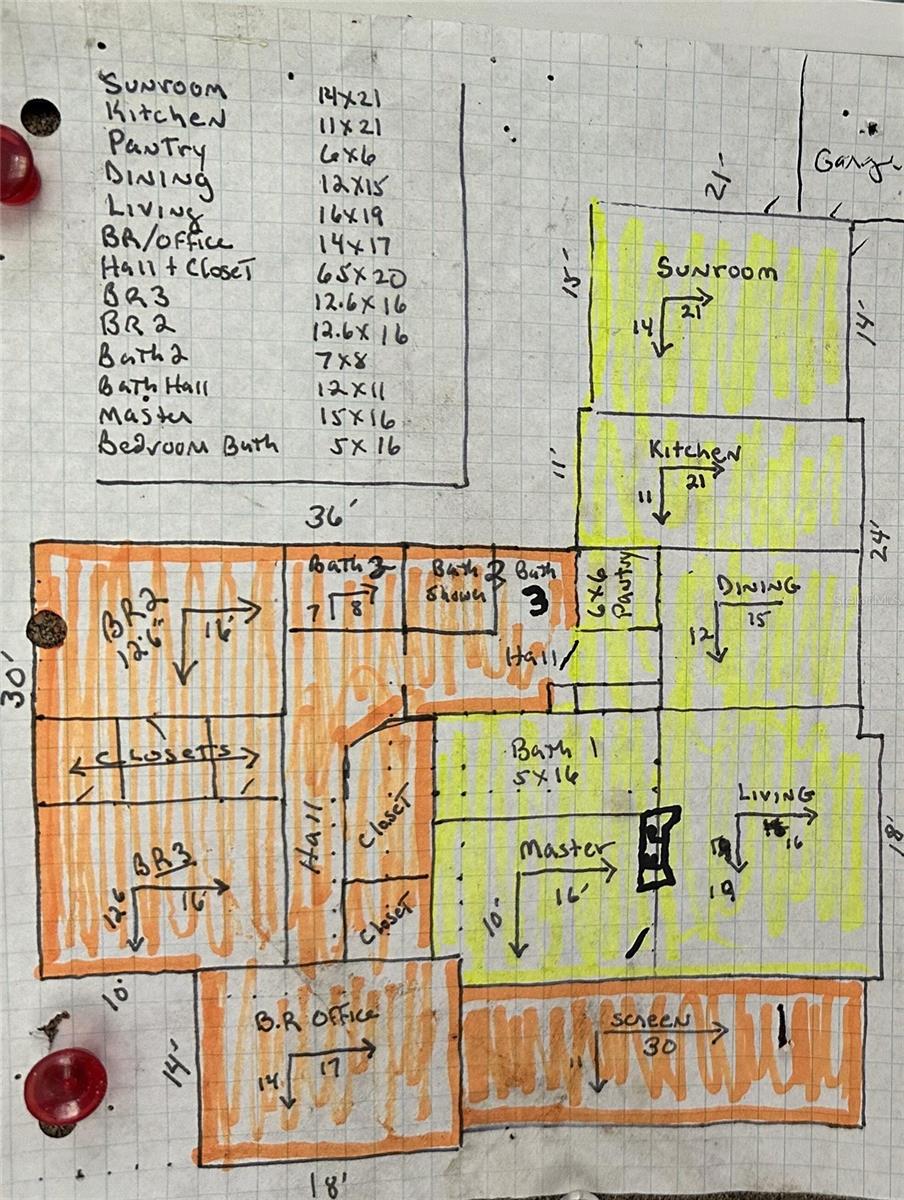 Sunroom 14x21
Kitchen 11x21
Pantry 6x6
DINING 12x15
LIVING 16x19
BR/OFFICE 14x17
Hall + Closet 65x20
BR3 12.6x16
BR2 12.6x16
Bath2 7x8
Bath Hall 12x11
Master 15x16
Bedroom Bath 5x16
Garage
21'
15'
Sunroom
14 21
14'
Kitchen
11'
11 21
36'
24'
Bath 2
7 8
Bath 2
Shower
Bath
3
6x6
Pantry
DINING
12 15
BR2
12'6"
16'
Hall
30'
CLOSETS
Bath 1
5x16
LIVING
16
19
18'
Hall
Closet
Closet
BR3
12'6
16'
Master
10'
16'
10'
B.R OFFICE
14 17
14'
SCREEN
30
11
18'